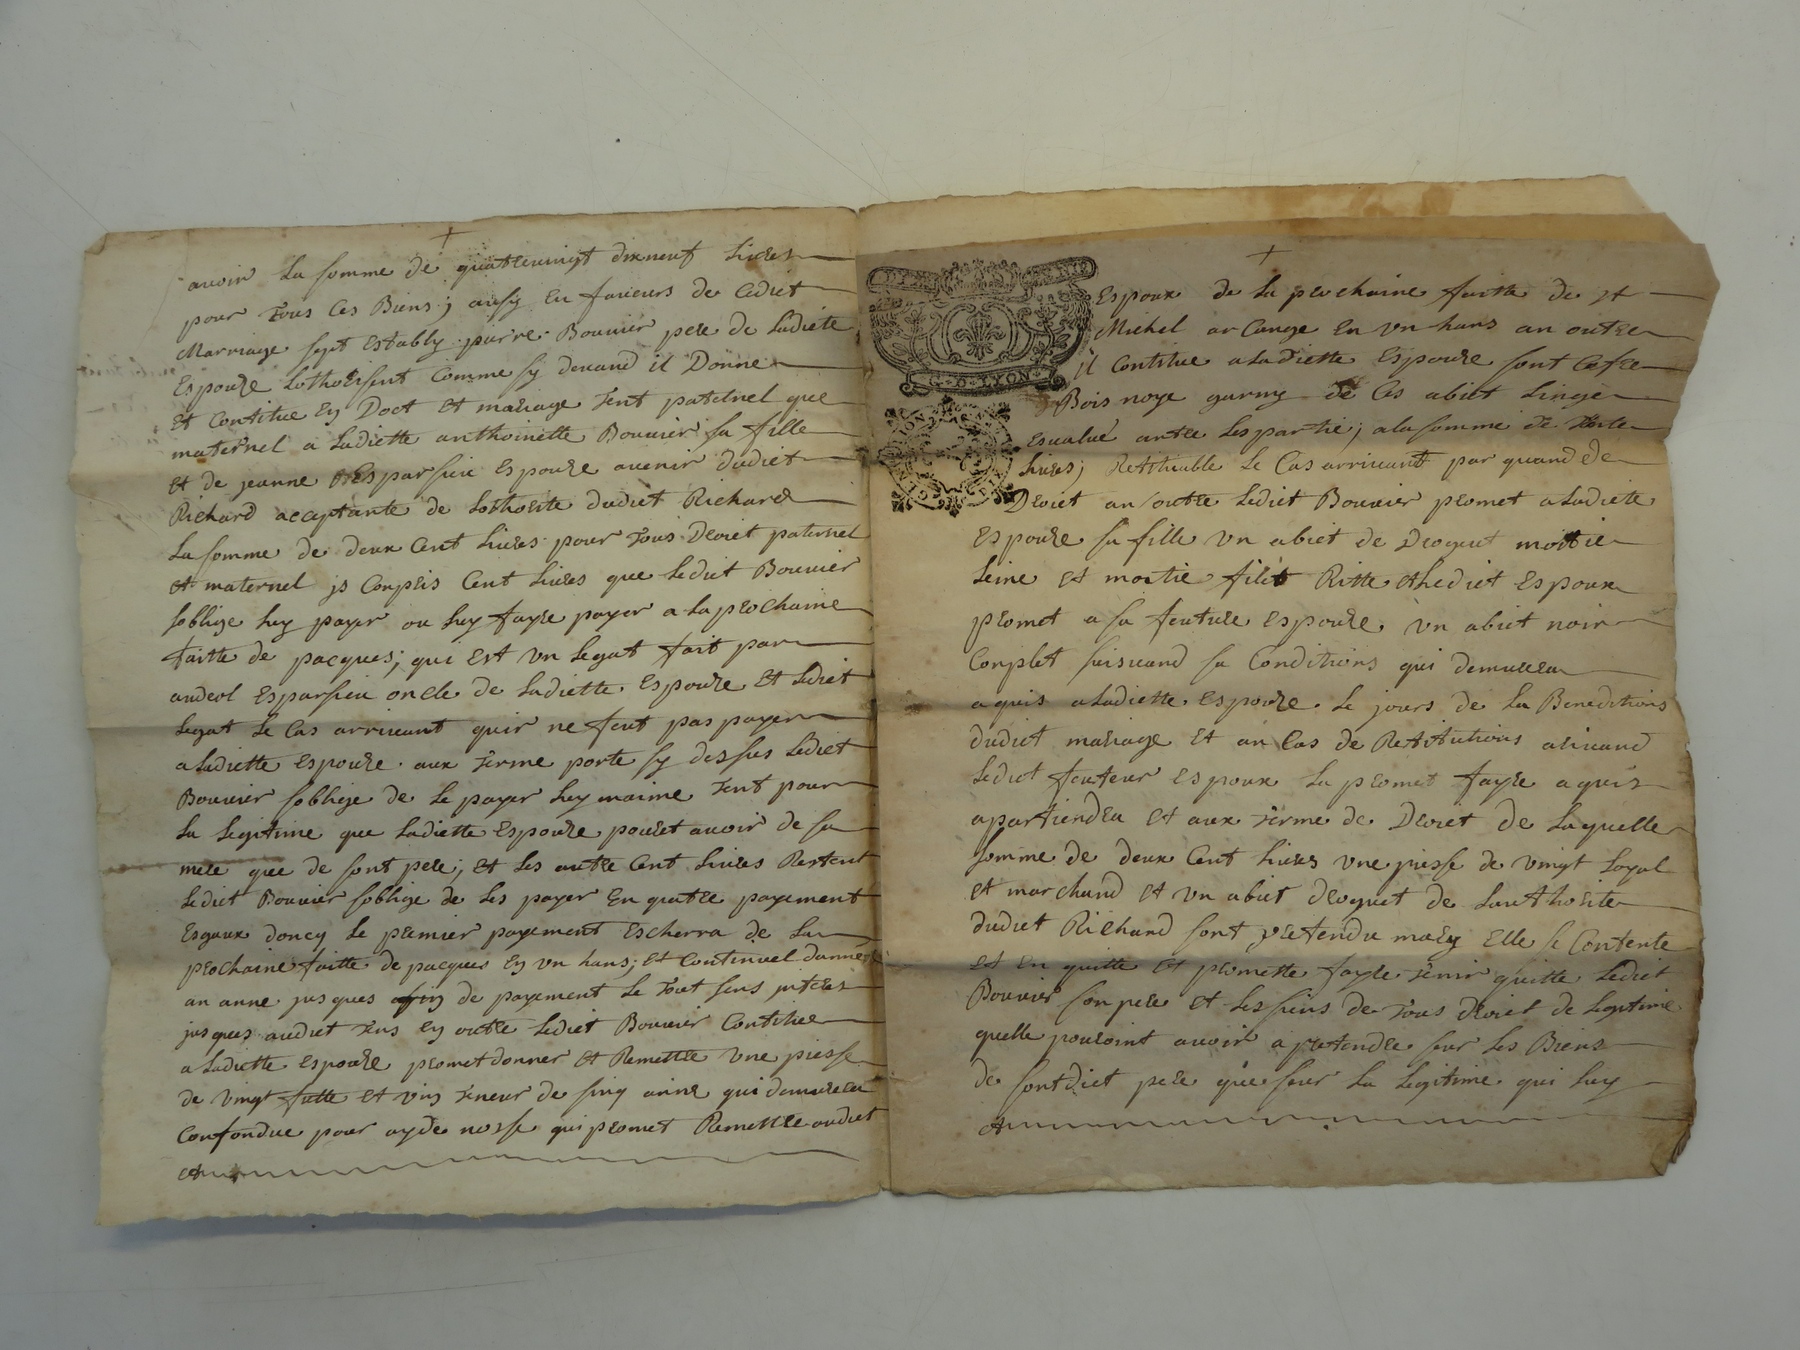 avoir La somme de quatrevingt dixneuf Livres
pour Tous Ces Biens; ausy En faveurs de Cediet
Marriage sest Estably pierre Bouvier pere de Ladiete
Espouze Lothorisent Comme sy devand il Donne
Et Contitue En Doct Et mariage Tent paternel que
maternel a Ladiette anthoinette Bouvier sa fille
Et de jeanne Esparsieu Espouze avenir dudiet
Richard acceptante de Lothorite dudiet Richard
La somme de deux Cent Livres pour Tous Droiet paternel
Et maternel js Conpris Cent Livres que Lediet Bouvier
soblige Luy payer ou Luy fayre payer a La prochaine
faitte de pacques; qui Est un Legat fait par
andeol Esparsieu oncle de Ladiette Espouze Et Lediet
Legat Le Cas arrivant quir ne feut pas payer
a Ladiette Espouze aux Terme porte sy dessus Lediet
Bouvier soblige de Le payer Luy maime Tent pour
La Legitime que Ladiette Espouze pouret avoir de sa
mere que de sont pere; Et Les autre Cent Livres Restent
Lediet Bouvier soblige de Les payer En quatre payement
Esgaux doncq Le premier payement Escherra de La
prochaine faitte de pacques En un hans; Et Continuel danne
an anne jusques afin de payement Le Tout sens jnteres
jusques audiet Tens En outre Lediet Bouvier Contitue
a Ladiette Espouze promet donner Et Remettre une piesse
de vingt futte Et vins Teneur de sinq anne qui demurera
Confondue pour ayde nosse qui promet Remettre audiet
Espoux de La prochaine faitte de st
Michel arCange En Vn hans an outre
il Contitue a Ladiette Espouze sont Cofre
Bois noye garny de Ces abiet Linge
Esvalué antre Les partie; a La somme de Trete
Livres; Retituable Le Cas arrivant par quand de
Droiet an outre Lediet Bouvier promet a Ladiete
Espouze sa fille Vn abiet de Droguet moitie
Leine Et moitie filet Ritte Et Lediet Espoux
promet a sa feuture Espouze Vn abiet noir
Conplet suisvand sa Conditions qui demurera
aquis a Ladiette Espouze Le jours de La Beneditions
dudiet mariage Et an Cas de Retitutions arivand
Lediet feuteur Espoux La promet fayre aquis
apartiendra Et aux Terme de Droiet de Laquelle
somme de deux Cent Livres Vne piesse de Vingt Loyal
Et marchand Et Vn abiet droguet de Lauthorite
dudiet Richard sont pretendu mary Elle se Contente
Et En quitte Et promette fayre Tenir quitte Lediet
Bouvier son pere Et Les siens de Tous droiet de Legitime
quelle pouroint avoir a pretendre sur Les Biens
de sontdiet pere que sur La Legitime qui Luy
G·D·LYON